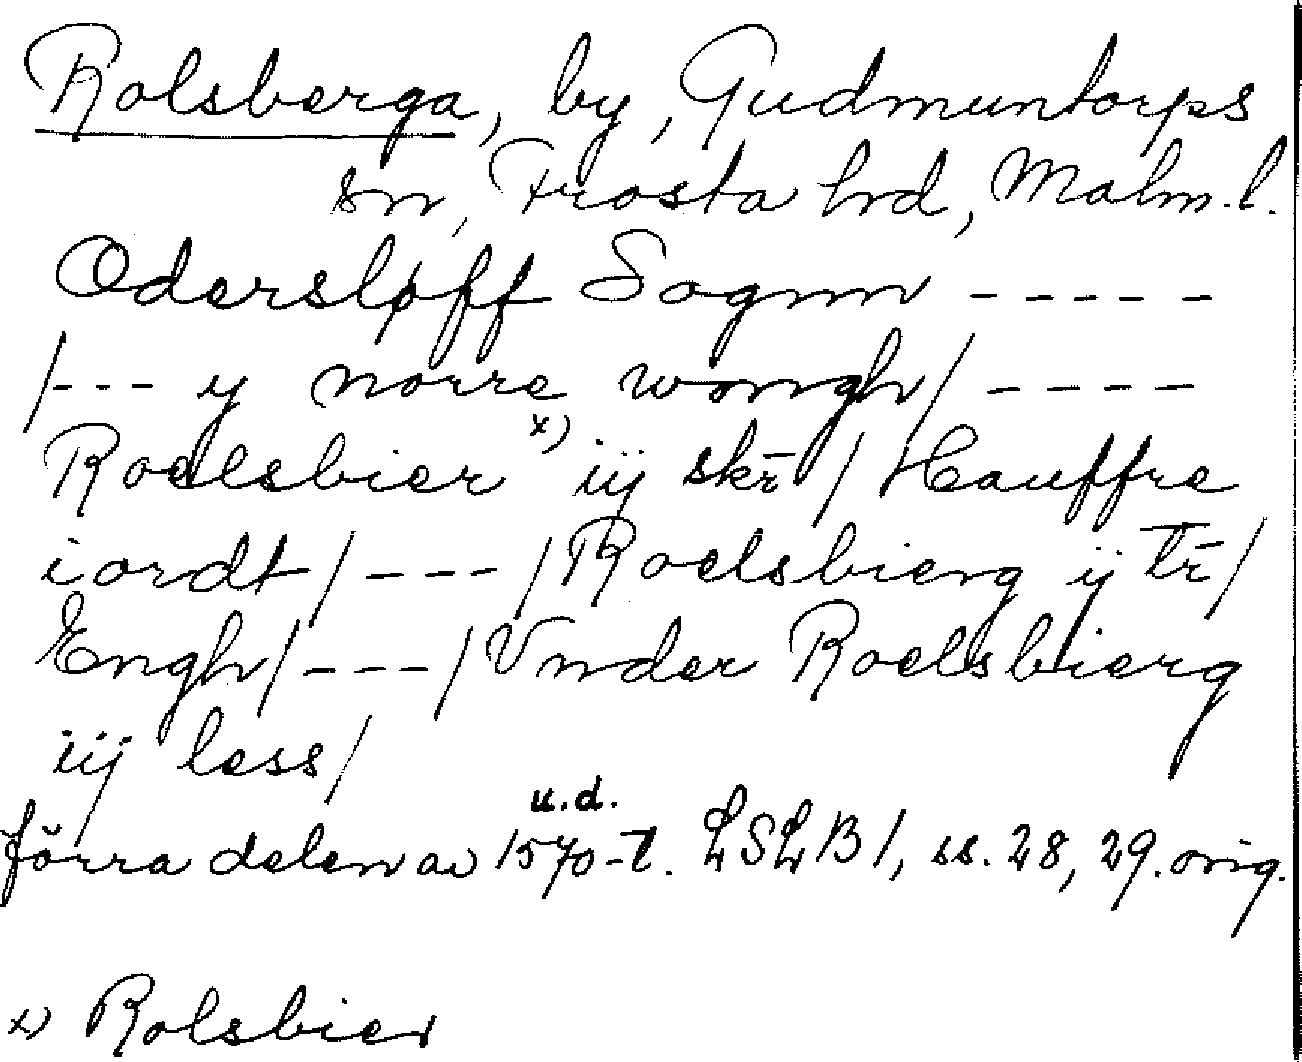 Rolsberga, by, Gudmuntorps
sn, Frosta hrd, Malm. l.
Odersløff Sognn -----
/--- y norre wongh/ ----
Roelsbier x) iij skr̄/ Hauffre
iordt/ ---/ Roelsbierg ij tr̄/
Engh/ ---/ Vnder Roelsbierg
iij less/
förra delen av 1570-t. u.d. LSLB 1, ss. 28, 29. orig.
x) Rolsbier